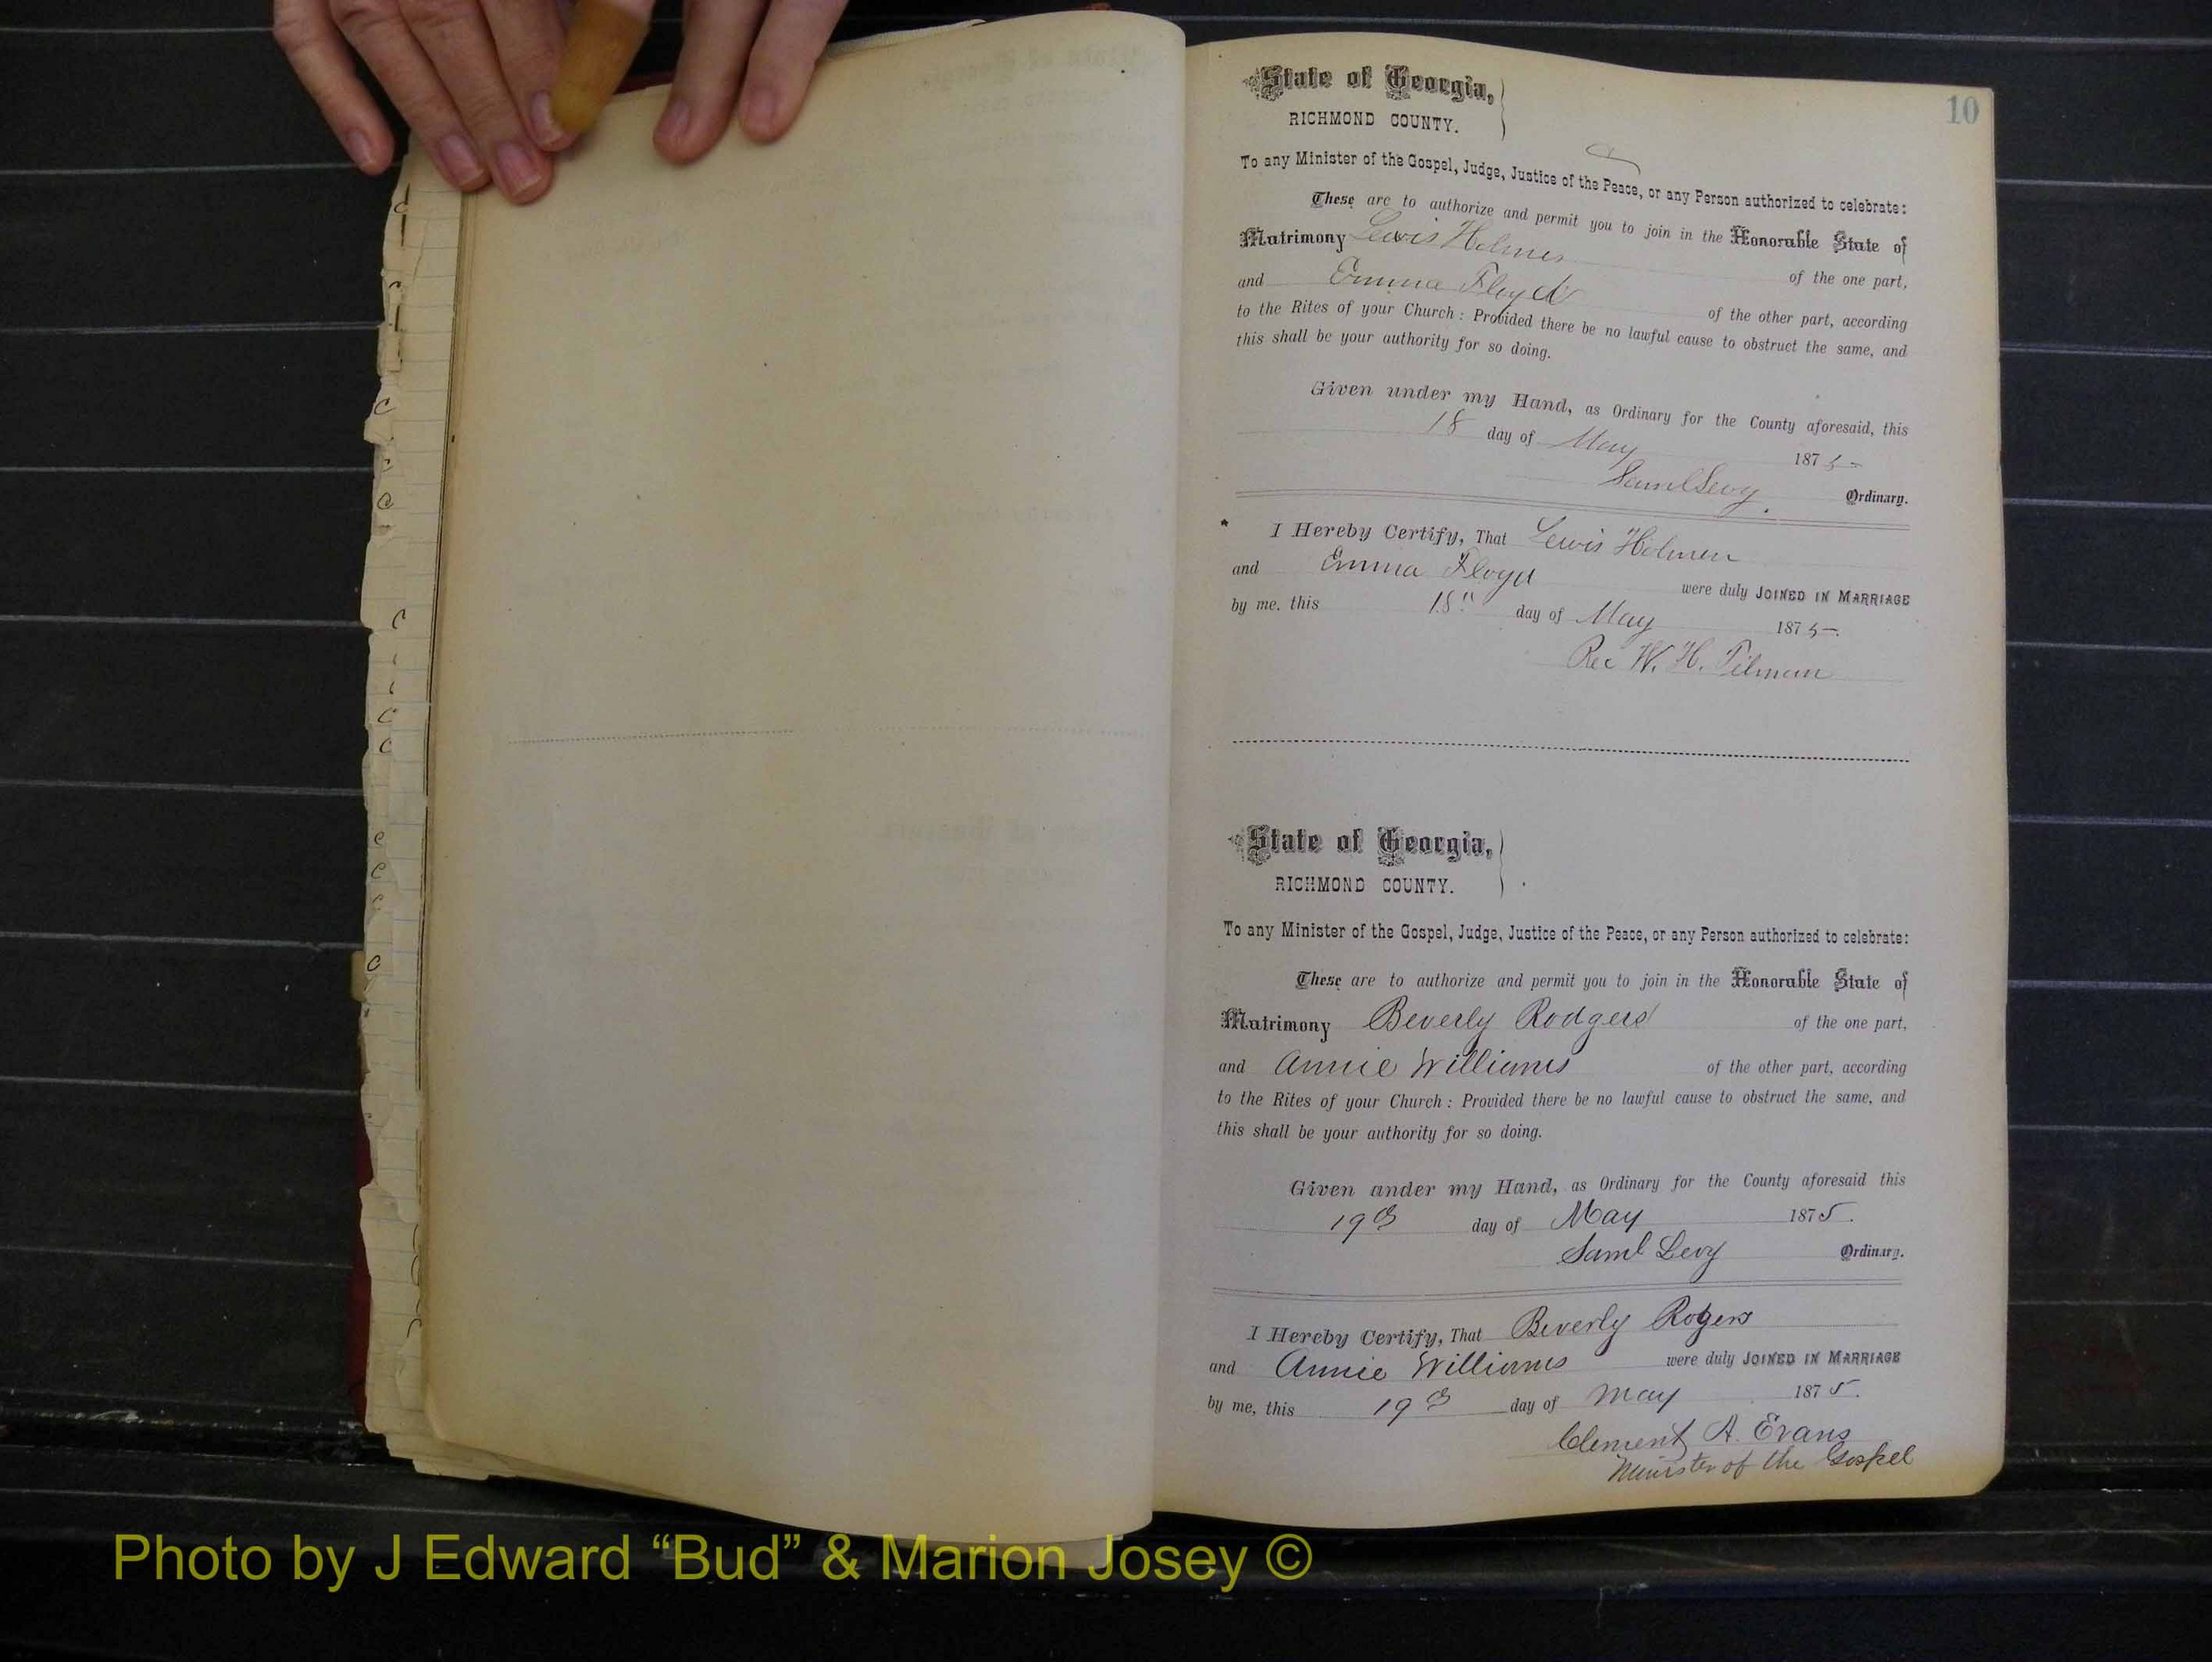 10
State of Georgia,
RICHMOND COUNTY.
To any Minister of the Gospel, Judge, Justice of the Peace, or any Person authorized to celebrate:
These are to authorize and permit you to join in the Honorable State of
Matrimony Lewis Holmes of the one part,
and Emma Floyd of the other part, according
to the Rites of your Church: Provided there be no lawful cause to obstruct the same, and
this shall be your authority for so doing.
Given under my Hand, as Ordinary for the County aforesaid, this
18 day of May 1875
Saml Levy Ordinary.
I Hereby Certify, That Lewis Holmes
and Emma Floyd were duly JOINED IN MARRIAGE
by me, this 18" day of May 1875.
W. H. Tilman
State of Georgia,
RICHMOND COUNTY.
To any Minister of the Gospel, Judge, Justice of the Peace, or any Person authorized to celebrate:
These are to authorize and permit you to join in the Honorable State of
Matrimony Beverly Rodgers of the one part,
and Annie Williams of the other part, according
to the Rites of your Church: Provided there be no lawful cause to obstruct the same, and
this shall be your authority for so doing.
Given under my Hand, as Ordinary for the County aforesaid this
19th day of May 1875.
Saml Levy Ordinary.
I Hereby Certify, That Beverly Rogers
and Annie Williams were duly JOINED IN MARRIAGE
by me, this 19th day of May 1875.
Clement A. Evans
Minister of the Gospel
Photo by J Edward “Bud” & Marion Josey ©